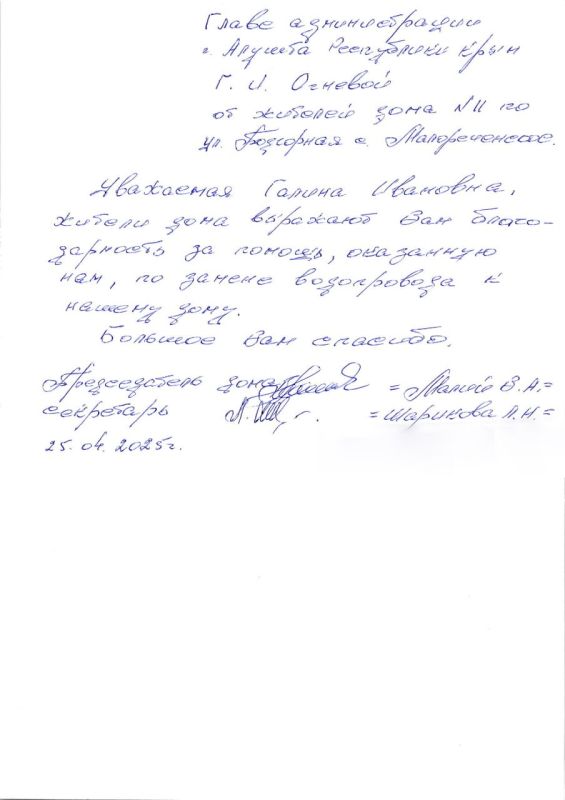 Главе администрации
г. Алушта Республики Крым
Г. И. Огневой
от жителей дома №11 по
ул. Подгорная с. Малореченское.
Уважаемая Галина Ивановна,
жители дома выражают Вам благо-
дарность за помощь, оказанную
нам, по замене водопровода к
нашему дому.
Большое Вам спасибо.
Председатель дома = Малей В. А.=
секретарь = Шарикова Л. Н. =
25. 04. 2025г.